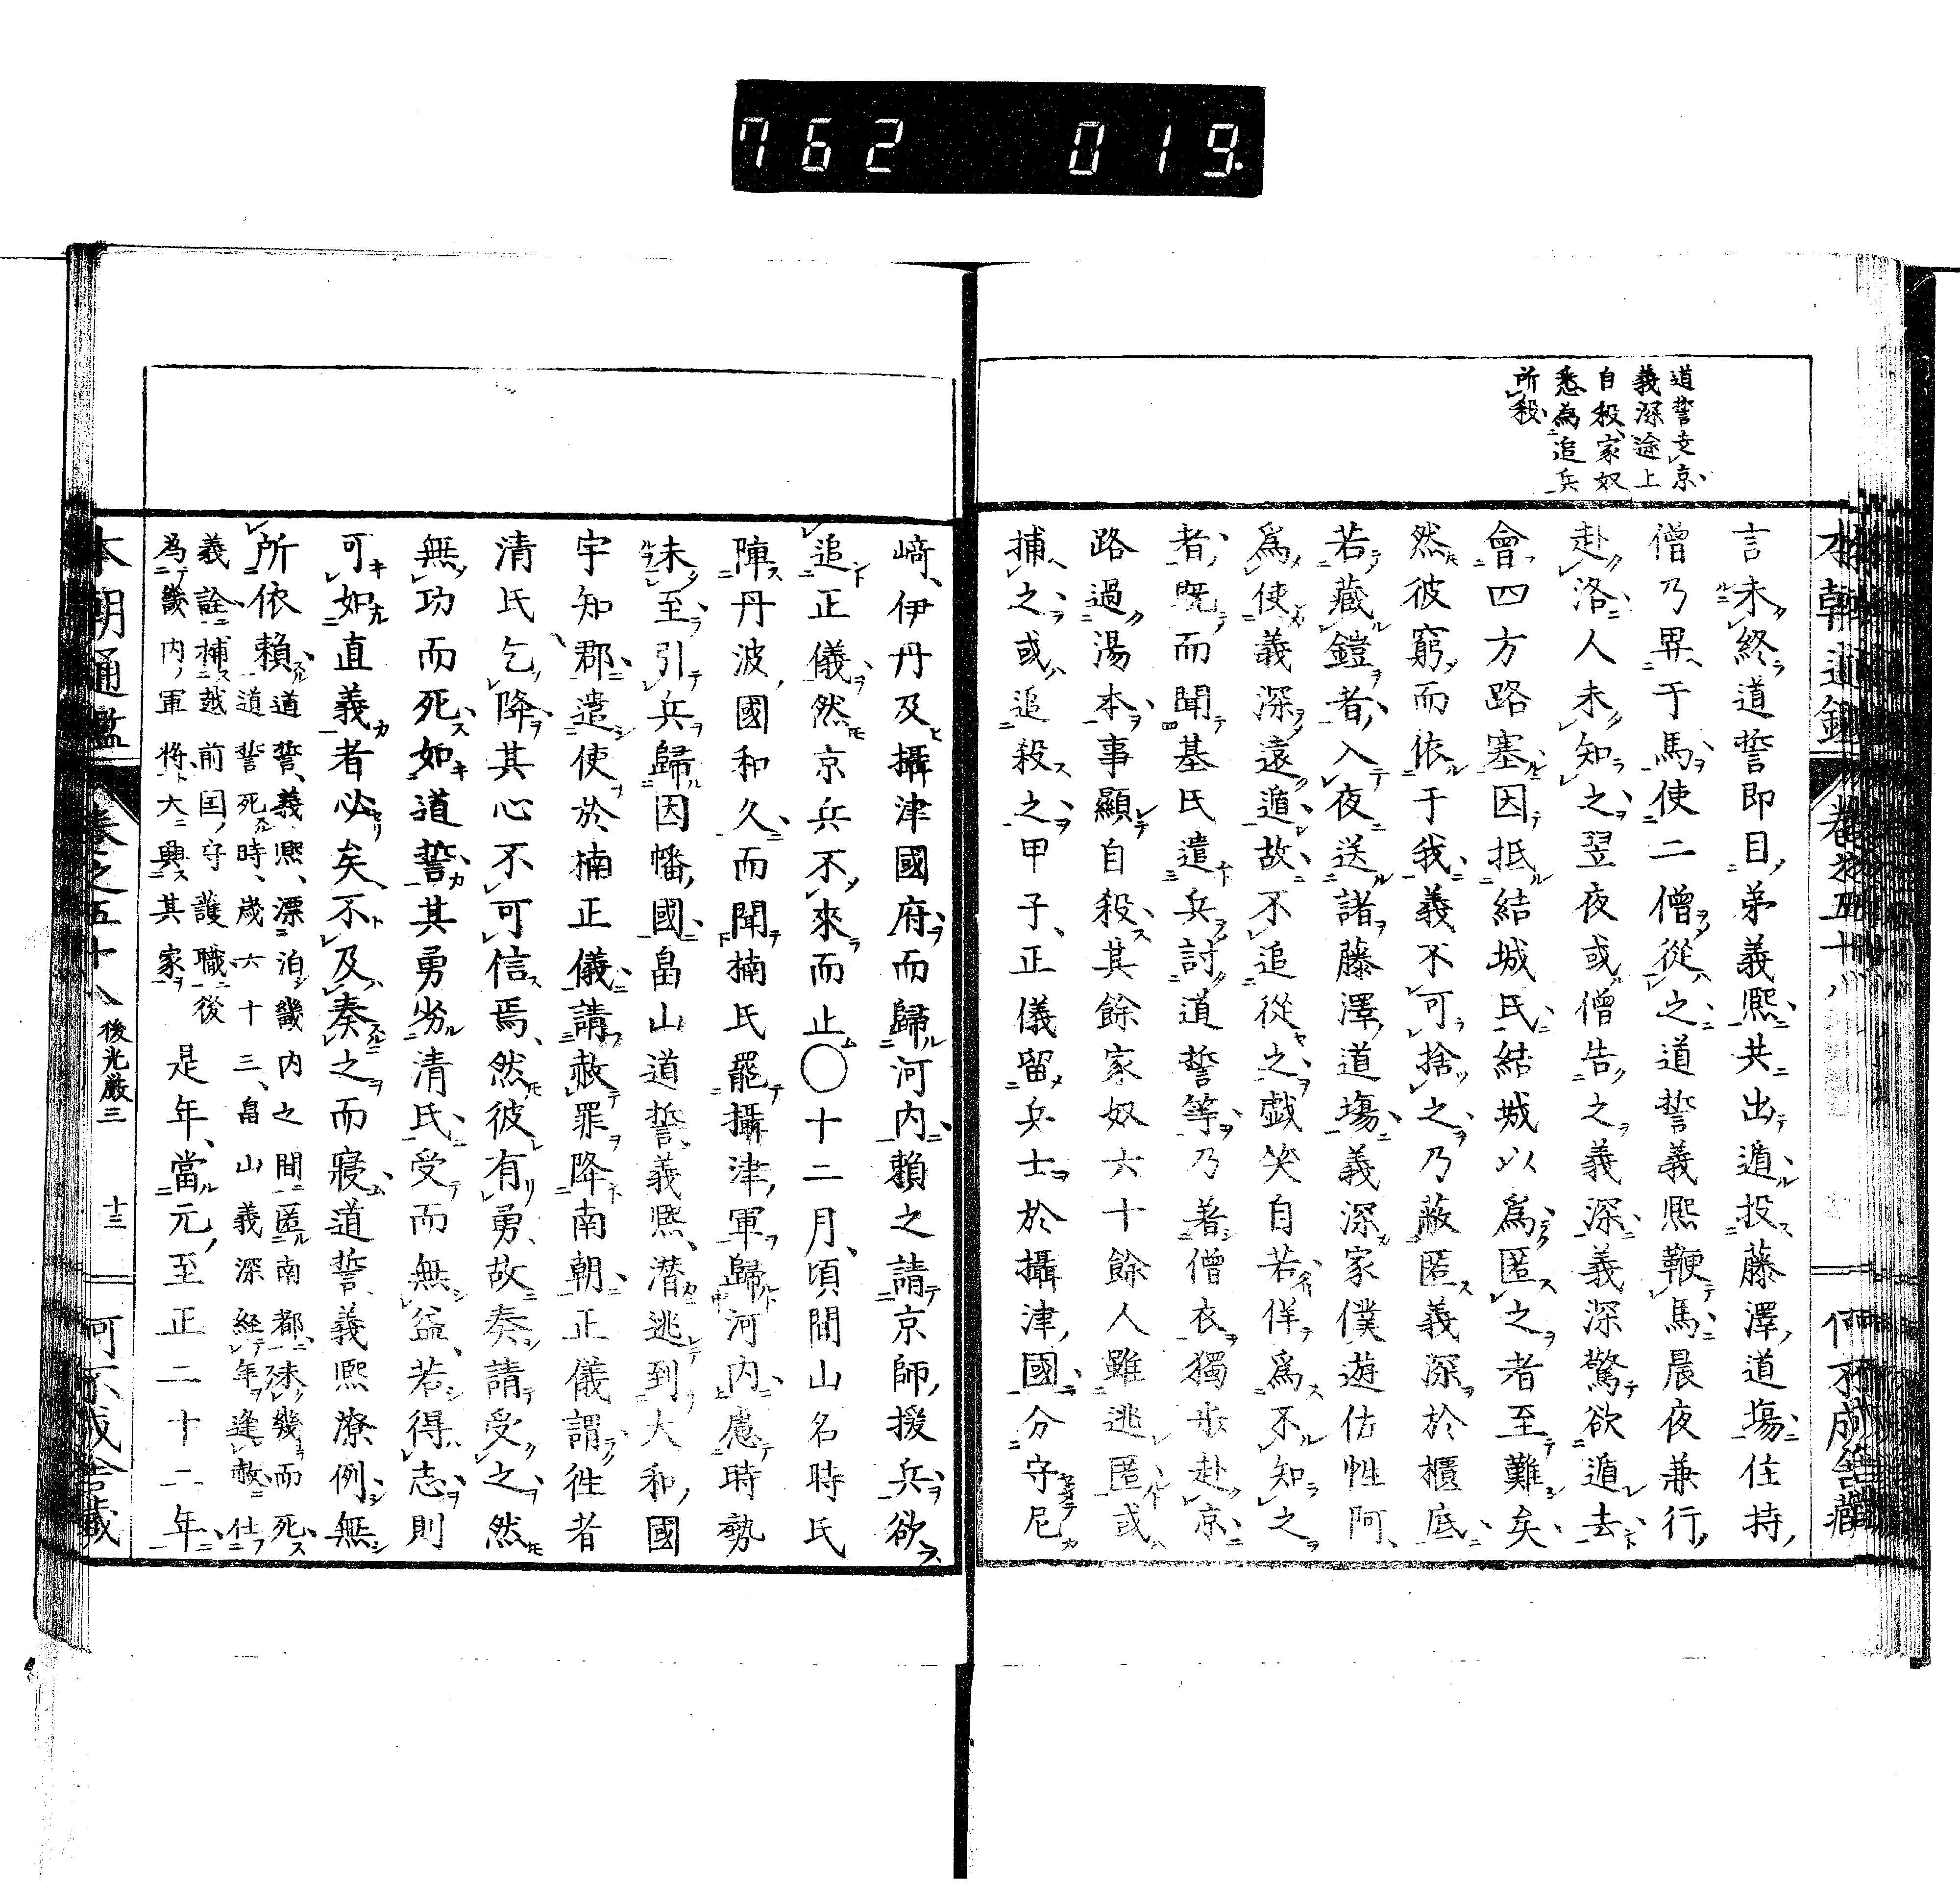 762 019
道誓支京
義深途上
自殺家奴
悉為追兵
所殺
言未終道誓即目弟義熙共出遁投藤澤道場住持
僧乃畀于馬使二僧從之道誓義熙鞭馬晨夜兼行
赴洛人未知之翌夜或僧告之義深義深驚欲遁去
會四方路塞因抵結城氏結城以為匿之者至難矣
然彼窮而依于我義不可捨之乃蔽匿義深於櫃底
若藏鎧者入夜送諸藤澤道場義深家僕遊佐性阿
為使義深遠遁故不追從之戯笑自若佯為不知之
者既而聞基氏遣兵討道誓等乃著僧衣獨歩赴京
路過湯本事顯自殺其餘家奴六十餘人雖逃匿或
捕之或追殺之甲子正儀留兵士於攝津國分守尼
﨑伊丹及攝津國府而歸河内賴之請京師援兵欲
追正儀然京兵不來而止〇十二月頃間山名時氏
陣丹波國和久而聞楠氏罷攝津軍歸河内應時勢
未至引兵歸因幡國畠山道誓義熙潜逃到大和國
宇知郡遣使於楠正儀請赦罪降南朝正儀謂徃者
清氏乞降其心不可信焉然彼有勇故奏請受之然
無功而死如道誓其勇劣清氏受而無益若得志則
可如直義者必矣不及奏之而寢道誓義熙潦例無
所依賴道誓義熙漂泊畿内之間匿南都未幾而死
道誓死時歳六十三畠山義深経年逢赦仕
義詮捕越前国守護職後
為畿内軍将大興其家
是年當元至正二十二年
本朝通鑑 巻之五十八 後光厳三 十三